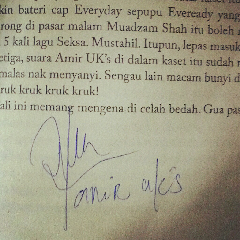 kin bateri cap Everyday sepupu Eveready yang
orong di pasar malam Muadzam Shah itu boleh m
5 kali lagu Seksa. Mustahil. Itupun, lepas masuk
etiga, suara Amir UK's di dalam kaset itu sudah m
malas nak menyanyi. Sengau lain macam bunyi d
ruk kruk kruk kruk!
ali ini memang mengena di celah bedah. Gua pas
amir uk's